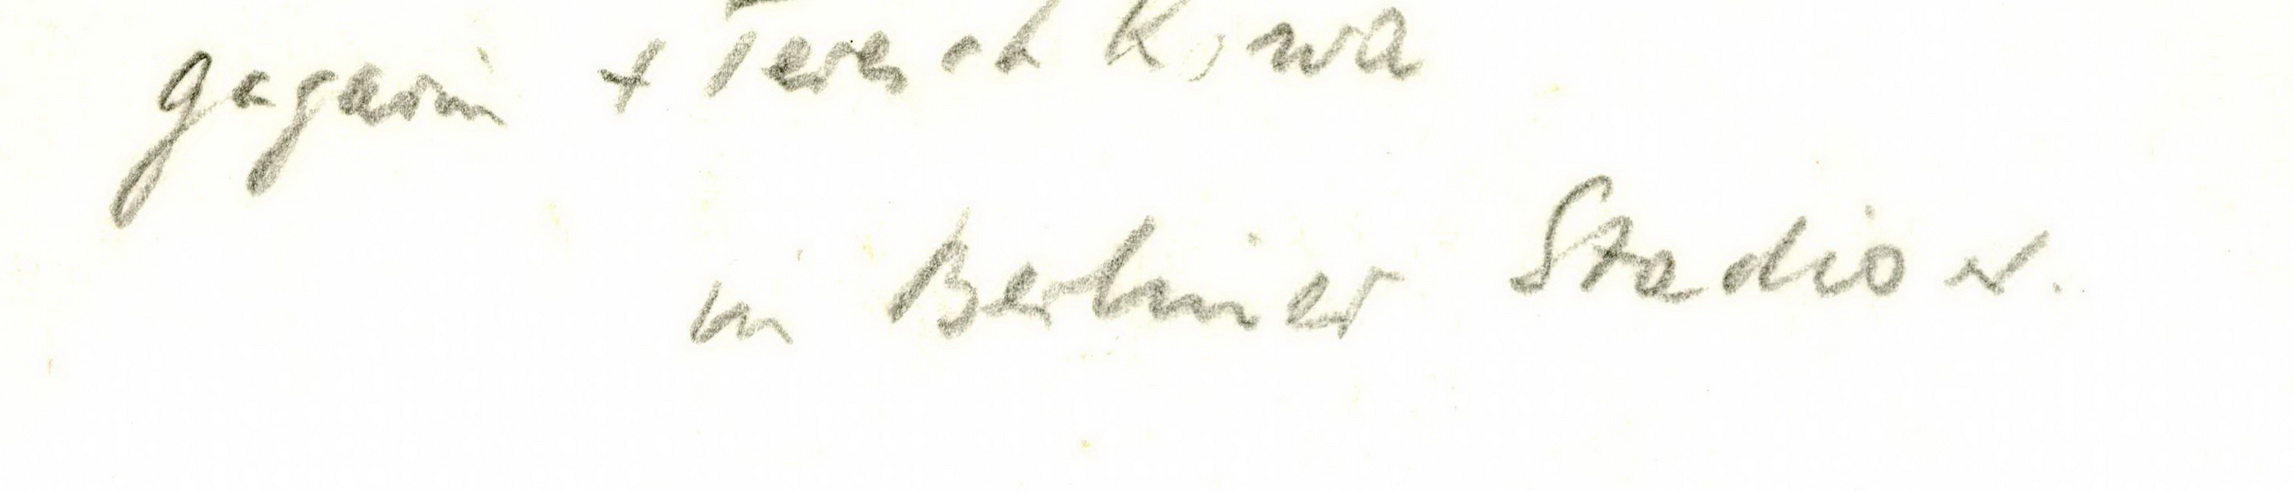 Gagarin + Tereschkowa
in Berliner Stadion.